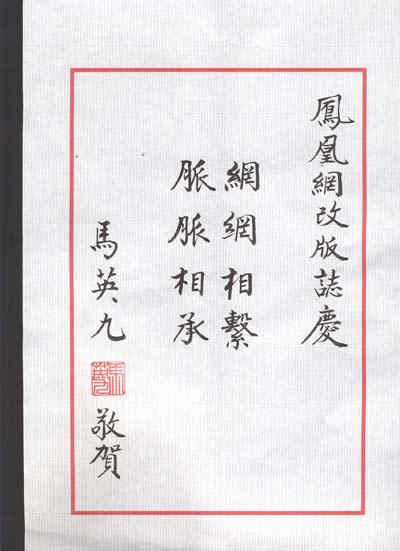 鳳凰網改版誌慶
網網相繫
脈脈相承
馬英九
馬英九
敬賀